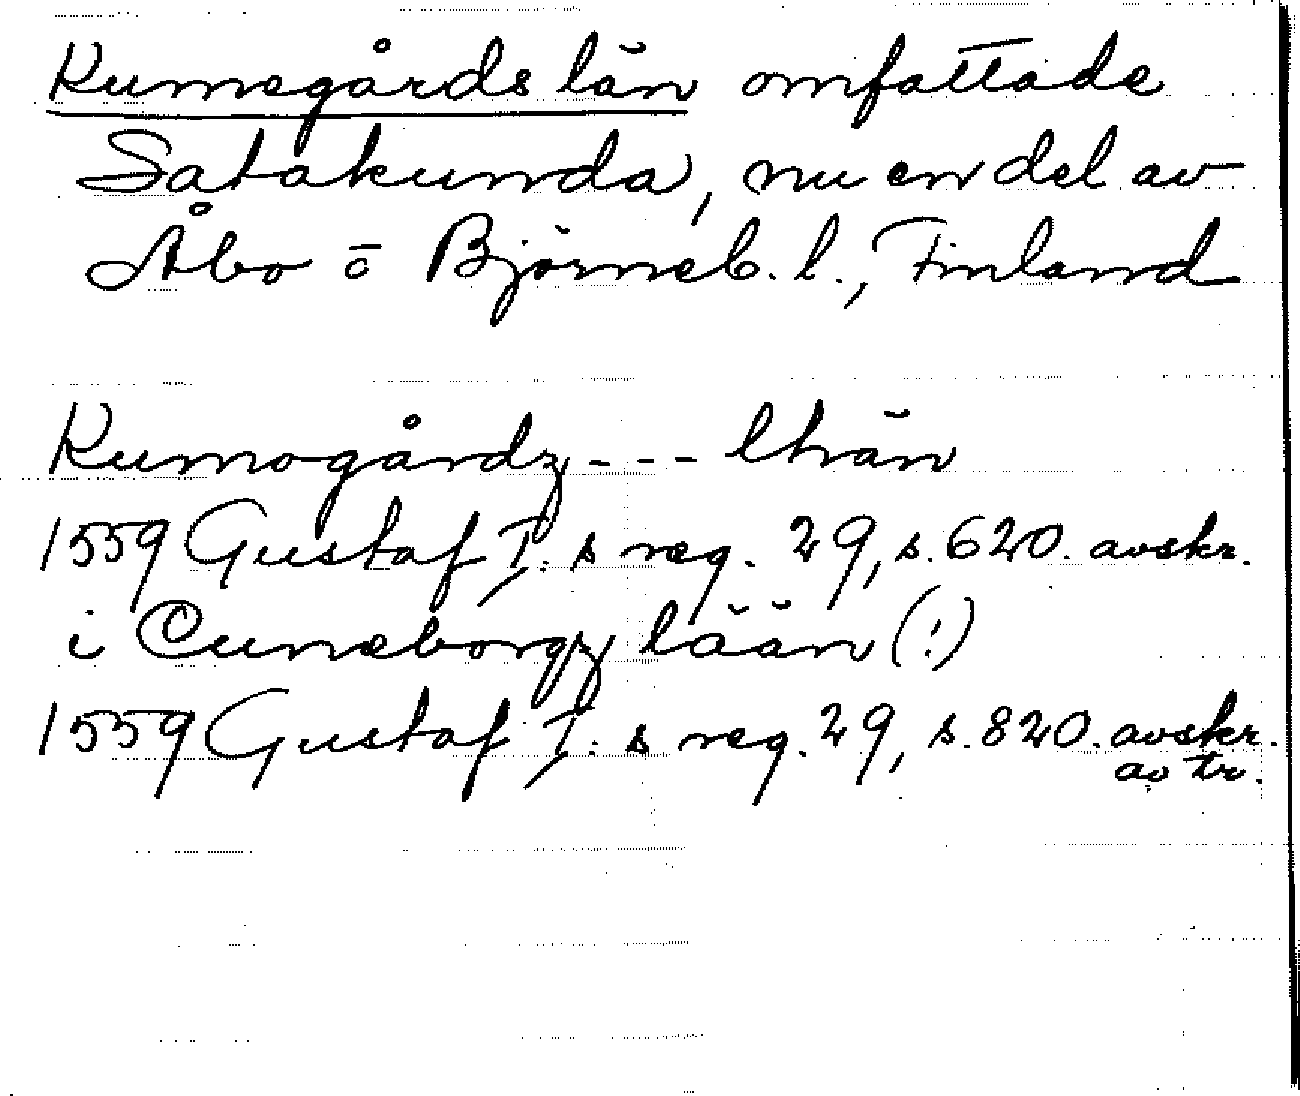 Kumogårds län omfattade
Satakunda, nu en del av
Åbo o Björneb. l., Finland
Kumogårdz --- lhän
1559 Gustaf I:s reg. 29, s. 620. avskr.
i Cuneborgz lään (!)
1559 Gustaf I:s reg. 29, s. 820. avskr.
av tr.